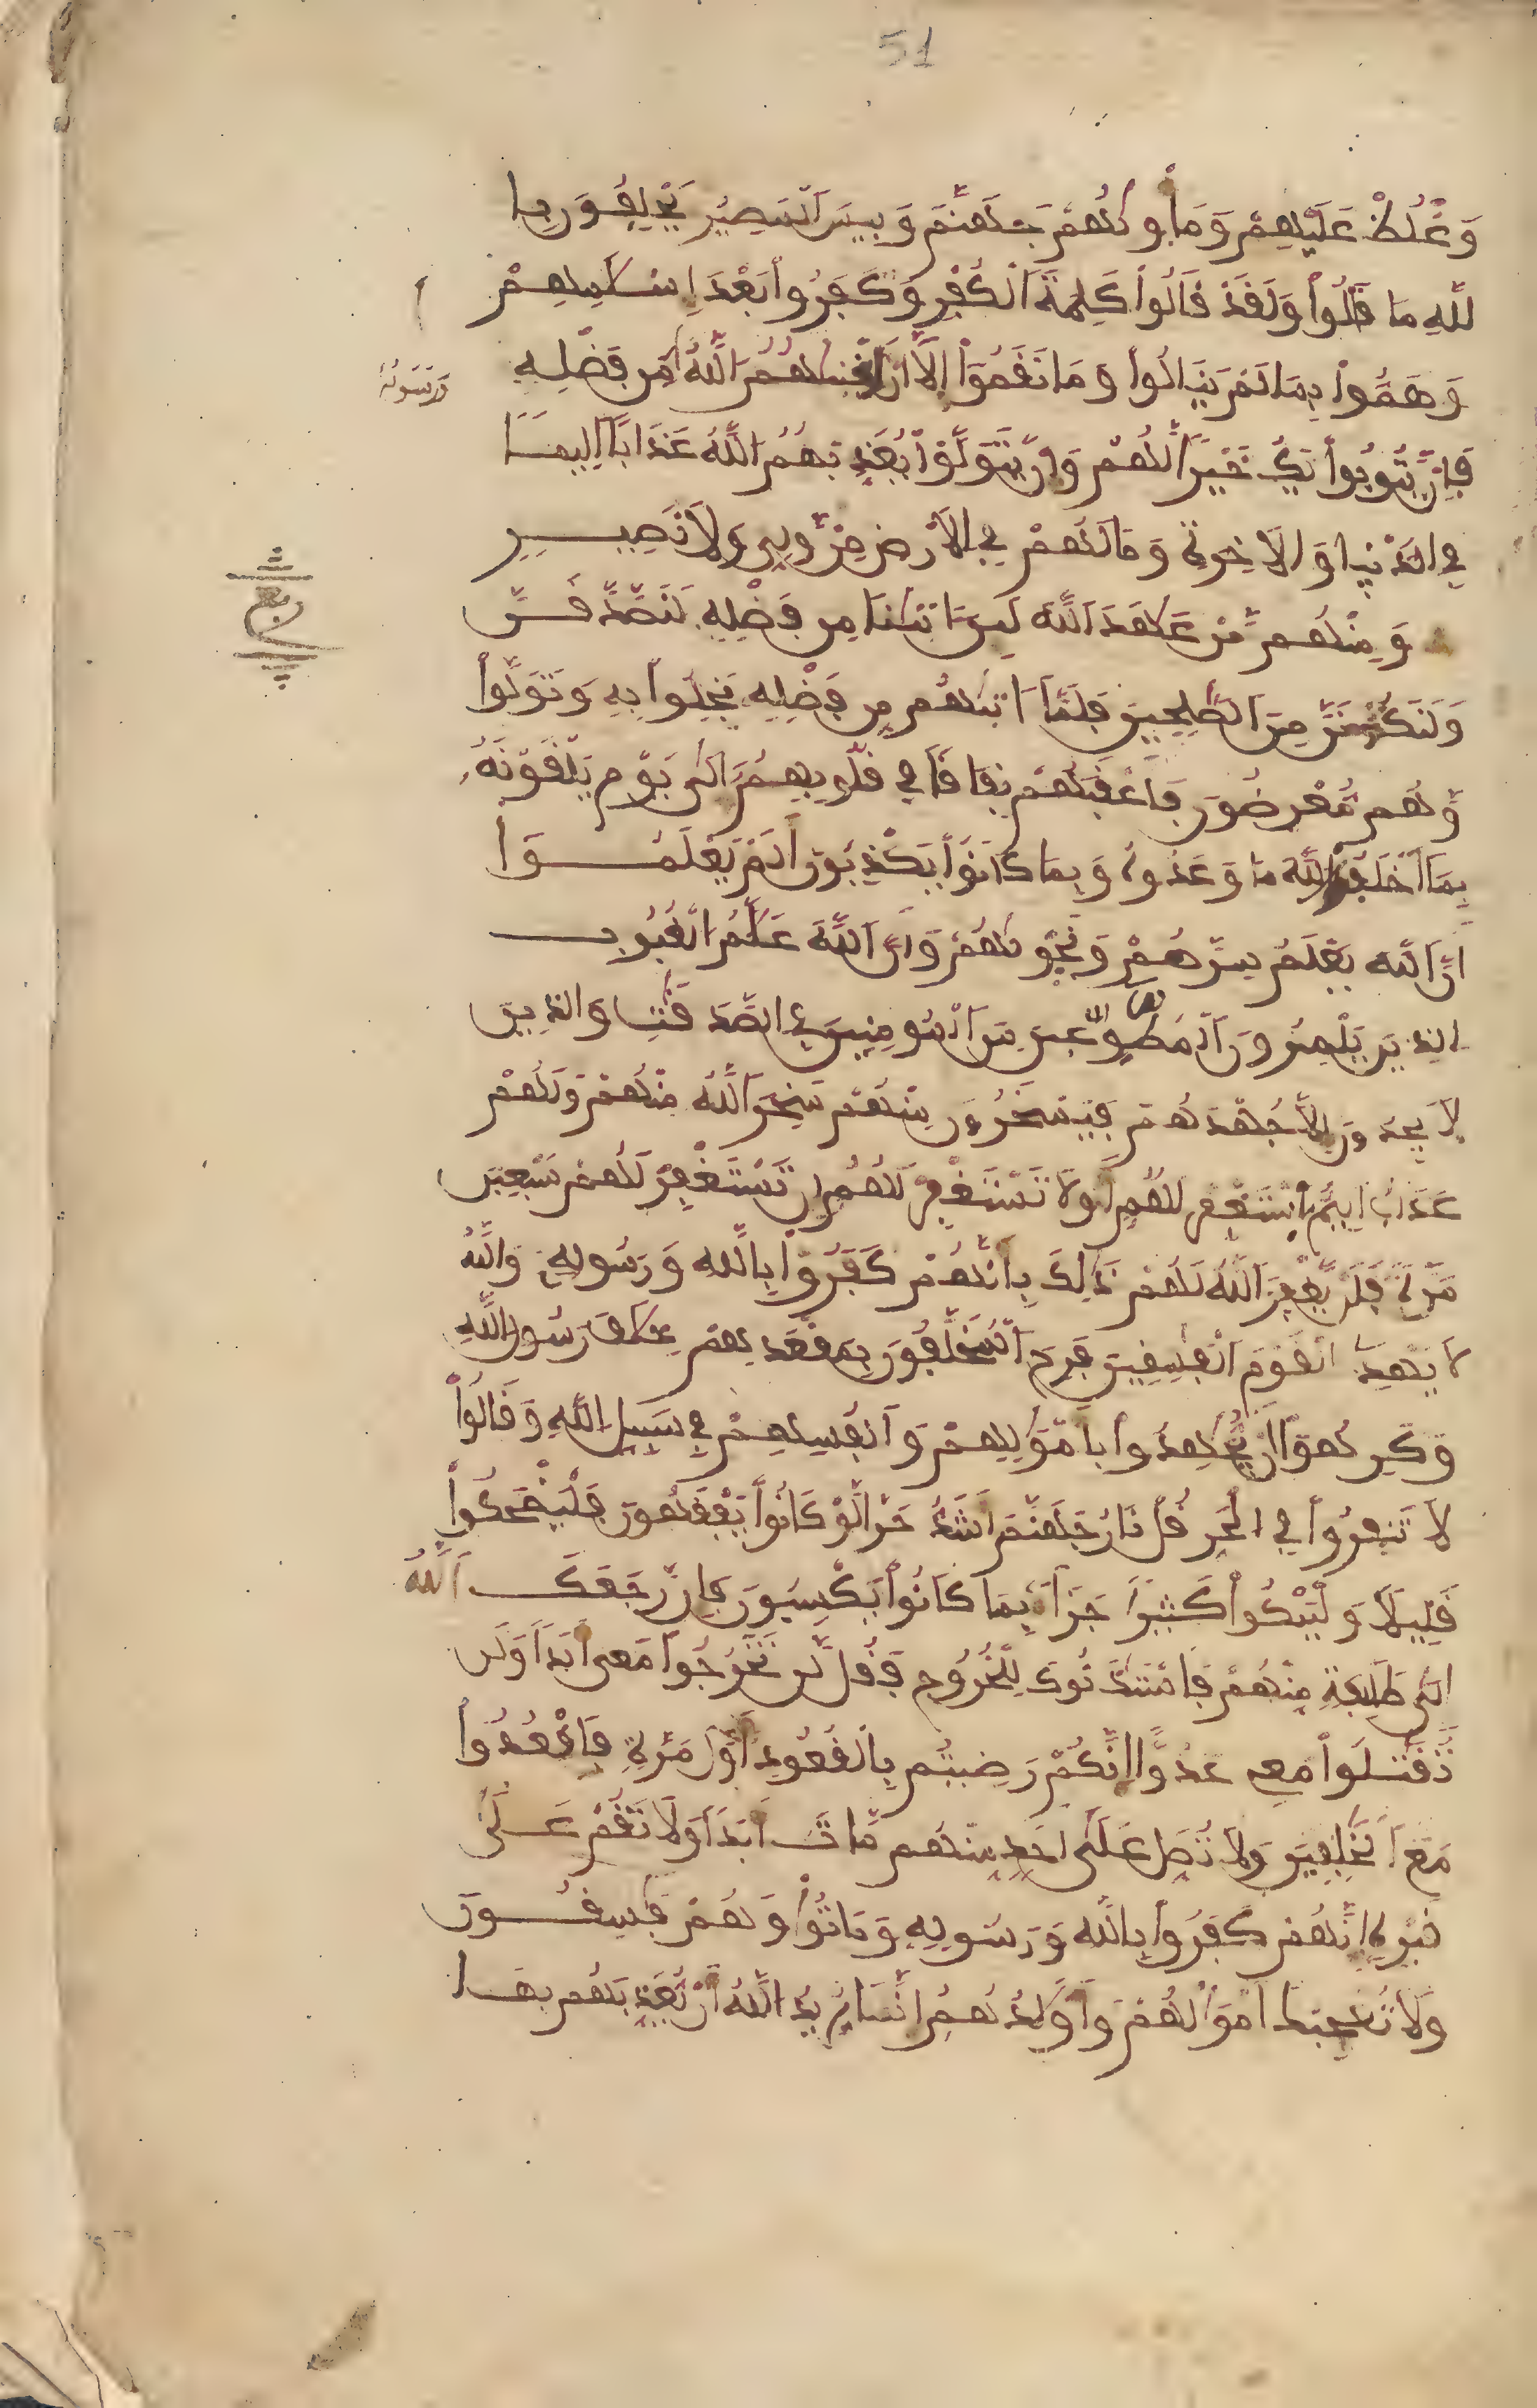 51
وَغْلُظْ عَلَيْهِمْ وَمَأْوٜلهُمْ جَهَنَّمُ وَبِيسَ ٱلْمَصِيرُ يَحْلِفُونَ بِا
للهِ مَا قَالُواْ وَلَقَدْ قَالُواْ كَلِمَةَ ٱلْكُفْرِ وَكَفَرُواْ بَعْدَ إِسْلَٰمِهِمْ
وَهَمُّواْ بِمَا لَمْ يَنَالُواْ وَمَا نَقَمُوٓاْ إِلَّآ أَنَ اَغْنٜيٰهُمُ ٱللَّهُ مِن فَضْلِهِ
وَرَسُولُهُ
فَإِنْ يَّتُوبُواْ يَكُ خَيْراً لَّهُمْ وَإِنْ يَّتَوَلَّوْاْ يُعَذِّبْهُمُ ٱللَّهُ عَذَاباً اَلِيمًا
فِي ٱلدُّنْيا وَٱلَاخِرَةِ وَمَا لَهُمْ فِي ٱلَارْضِ مِنْ وَّلِيٍّ وَلَا نَصِيرٍ
ربع
وَمِنْهُم مَّنْ عَٰهَدَ ٱللَّهَ لَئِنَ اٰتٜيٰنَا مِن فَضْلِهِ لَنَصَّدَّقَنَّ
وَلَنَكُونَنَّ مِنَ ٱلصَّٰلِحِينَ فَلَمَّآ ءَاتٜيٰهُم مِّن فَضْلِهِ بَخِلُواْ بِهِ وَتَوَلَّواْ
وَّهُم مُّعْرِضُونَ فَأَعْقَبَهُمْ نِفَاقاً فِي قُلُوبِهِمُ إِلَىٰ يَوْمِ يَلْقَوْنَهُ
بِمَآ أَخْلَفُواْ ٱللَّهَ مَا وَعَدُوهُ وَبِمَا كَانُواْ يَكْذِبُونَ أَلَمْ يَعْلَمُواْ
أَنَّ ٱللَّهَ يَعْلَمُ سِرَّهُمْ وَنَجْوٜيٰهُمْ وَأَنَّ ٱللَّهَ عَلَّٰمُ ٱلْغُيُوبِ
ٱلذِينَ يَلْمِزُونَ ٱلْمُطَّوِّعِينَ مِنَ ٱلْمُومِنِينَ فِي ٱلصَّدَقَٰتِ وَٱلذِينَ
لَا يَجِدُونَ إِلَّا جُهْدَهُمْ فَيَسْخَرُونَ مِنْهُمْ سَخِرَ ٱللَّهُ مِنْهُمْ وَلَهُمْ
عَذَابٌ اَلِيمٌ اِسْتَغْفِرْ لَهُمُ أَوْ لَا تَسْتَغْفِرْ لَهُمُ إِن تَسْتَغْفِرْ لَهُمْ سَبْعِينَ
مَرَّةً فَلَنْ يَّغْفِرَ ٱللَّهُ لَهُمْ ذَٰلِكَ بِأَنَّهُمْ كَفَرُواْ بِاللَّهِ وَرَسُولِهِ وَاللَّهُ
لَا يَهْدِي ٱلْقَوْمَ ٱلْفَٰسِقِينَ فَرِحَ ٱلْمُخَلَّفُونَ بِمَقْعَدِهِمْ خِلَٰفَ رَسُولِ ٱللَّهِ
وَكَرِهُوٓاْ أَنْ يُّجَٰهِدُواْ بِأَمْوَٰلِهِمْ وَأَنفُسِهِمْ فِي سَبِيلِ ٱللَّهِ وَقَالُواْ
لَا تَنفِرُواْ فِي ٱلْحَرِّ قُلْ نَارُ جَهَنَّمَ أَشَدُّ حَرّاً لَّوْ كَانُواْ يَفْقَهُونَ فَلْيَضْحَكُواْ
قَلِيلاً وَلْيَبْكُواْ كَثِيراً جَزَآءً بِمَا كَانُواْ يَكْسِبُونَ فَإِن رَّجَعَكَ ٱللَّهُ
إِلَىٰ طَآئِفَةٍ مِّنْهُمْ فَاسْتَـٔذَنُوكَ لِلْخُرُوجِ فَقُل لَّن تَخْرُجُواْ مَعِيَ أَبَداً وَلَن
تُقَٰتِلُواْ مَعِي عَدُوّاً اِنَّكُمْ رَضِيتُم بِالْقُعُودِ أَوَّلَ مَرَّةٍ فَاقْعُدُواْ
مَعَ ٱلْخَٰلِفِينَ وَلَا تُصَلِّ عَلَىٰٓ أَحَدٍ مِّنْهُم مَّاتَ أَبَداً وَلَا تَقُمْ عَلَىٰ
قَبْرِهِ إِنَّهُمْ كَفَرُواْ بِاللَّهِ وَرَسُولِهِ وَمَاتُواْ وَهُمْ فَٰسِقُونَ
وَلَا تُعْجِبْكَ أَمْوَٰلُهُمْ وَأَوْلَٰدُهُمُ إِنَّمَا يُرِيدُ ٱللَّهُ أَنْ يُّعَذِّبَهُم بِهَا